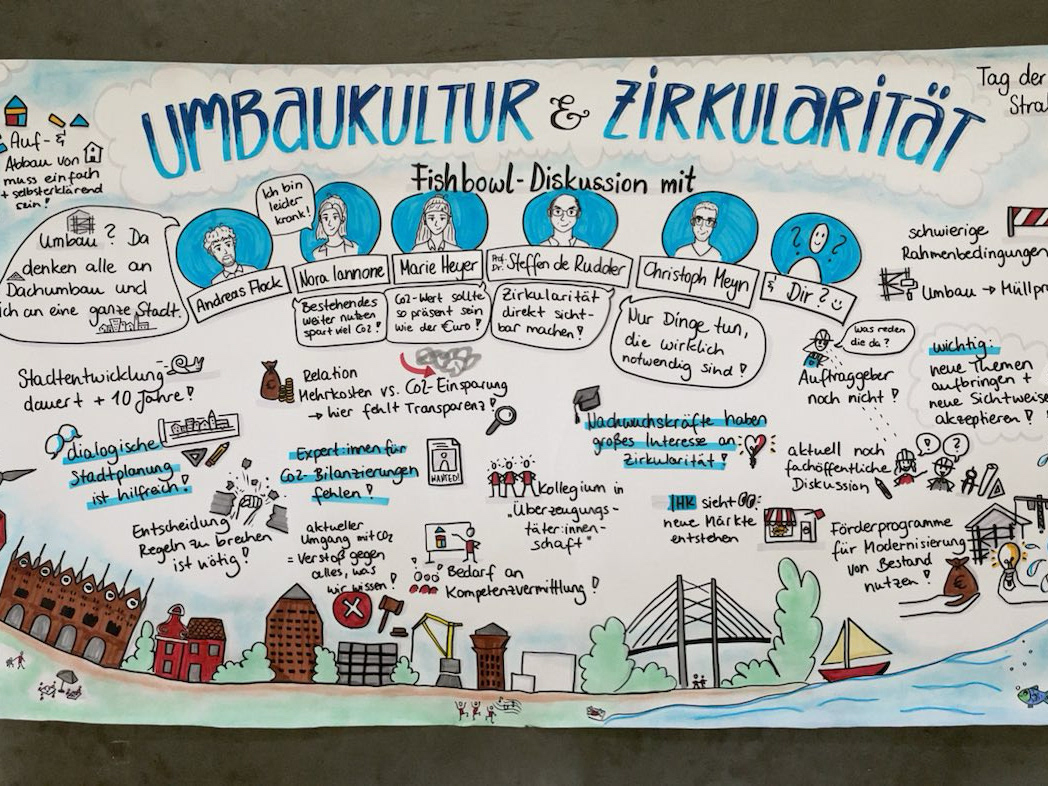 UMBAUKULTUR & ZIRKULARITÄT
Tag der
Fishbowl-Diskussion mit
Auf- &
Abbau von
muss einfach
+ selbsterklärend
sein!
Umbau? Da
denken alle an
Dachumbau und
ich an eine ganze Stadt.
Andreas Flock
Ich bin
leider
krank!
Nora Iannone
Bestehendes
weiter nutzen
spart viel Co2!
Marie Heyer
Co2-Wert sollte
so präsent sein
wie der €uro!
Prof. Dr. Steffen de Rudder
Zirkularität
direkt sicht-
bar machen!
Christoph Meyn
Nur Dinge tun,
die wirklich
notwendig sind!
& Dir?
? ?
schwierige
Rahmenbedingungen
Umbau → 
Was reden
die da?
Auftraggeber
noch nicht!
wichtig:
neue Themen
aufbringen +
neue Sichtweise
akzeptieren!
Stadtentwicklung
dauert + 10 Jahre!
Relation
Mehrkosten vs. Co2-Einsparung
→ hier fehlt Transparenz!
dialogische
Stadtplanung
ist hilfreich!
Expert:innen für
Co2-Bilanzierungen
fehlen!
WANTED!
Nachwuchskräfte haben
großes Interesse an
Zirkularität!
aktuell noch
fachöffentliche
Diskussion
! ?
Kollegium in
"Überzeugungs-
täter:innen-
schaft"
IHK sieht :
neue Märkte
entstehen
Entscheidung
Regeln zu brechen
ist nötig!
aktueller
Umgang mit CO2
= Verstoß gegen
alles, was
wir wissen!
Bedarf an
Kompetenzvermittlung!
Förderprogramme
für Modernisierung
von Bestand
nutzen!